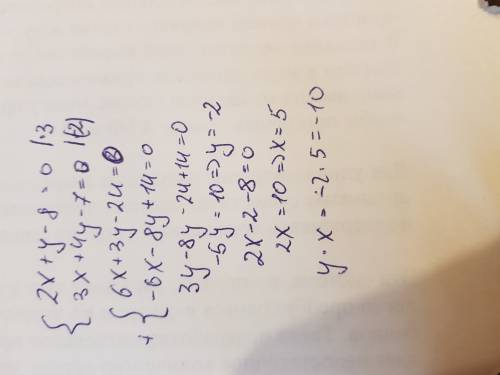 { 2x+y-8=0 |·3
3x+4y-7=0 |(-2)
+ { 6x+3y-24=0
-6x-8y+14=0
3y-8y-24+14=0
-5y=10=>y=-2
2x-2-8=0
2x=10=>x=5
y·x=-2·5=-10